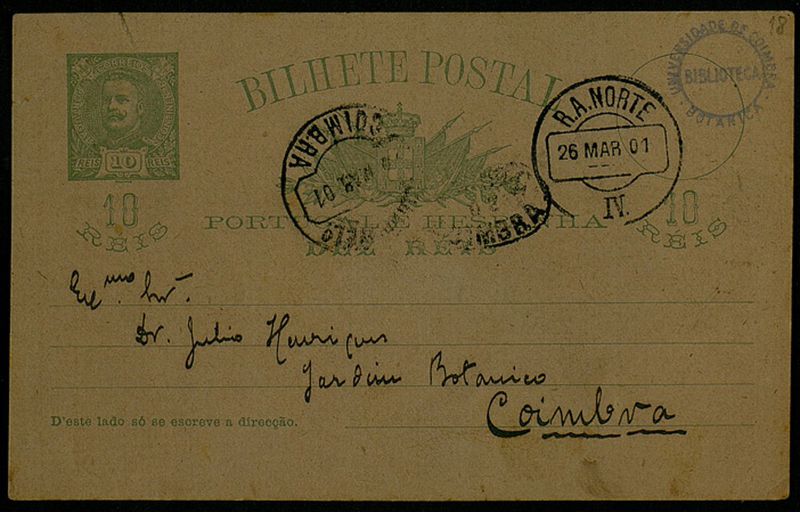 18
UNIVERSIDADE DE COIMBRA
BIBLIOTECA
BOTANICA
CORREIOS
REIS 10 REIS
BILHETE POSTAL
COIMBRA
MAR 01
R.A. NORTE
26 MAR 01
IV.
10
REIS
PORTUGAL E HESPANHA
DEZ RÉIS
10
RÉIS
Exmo. Snr.
Dr. Julio Henriques
Jardim Botanico
Coimbra
D'este lado só se escreve a direcção.